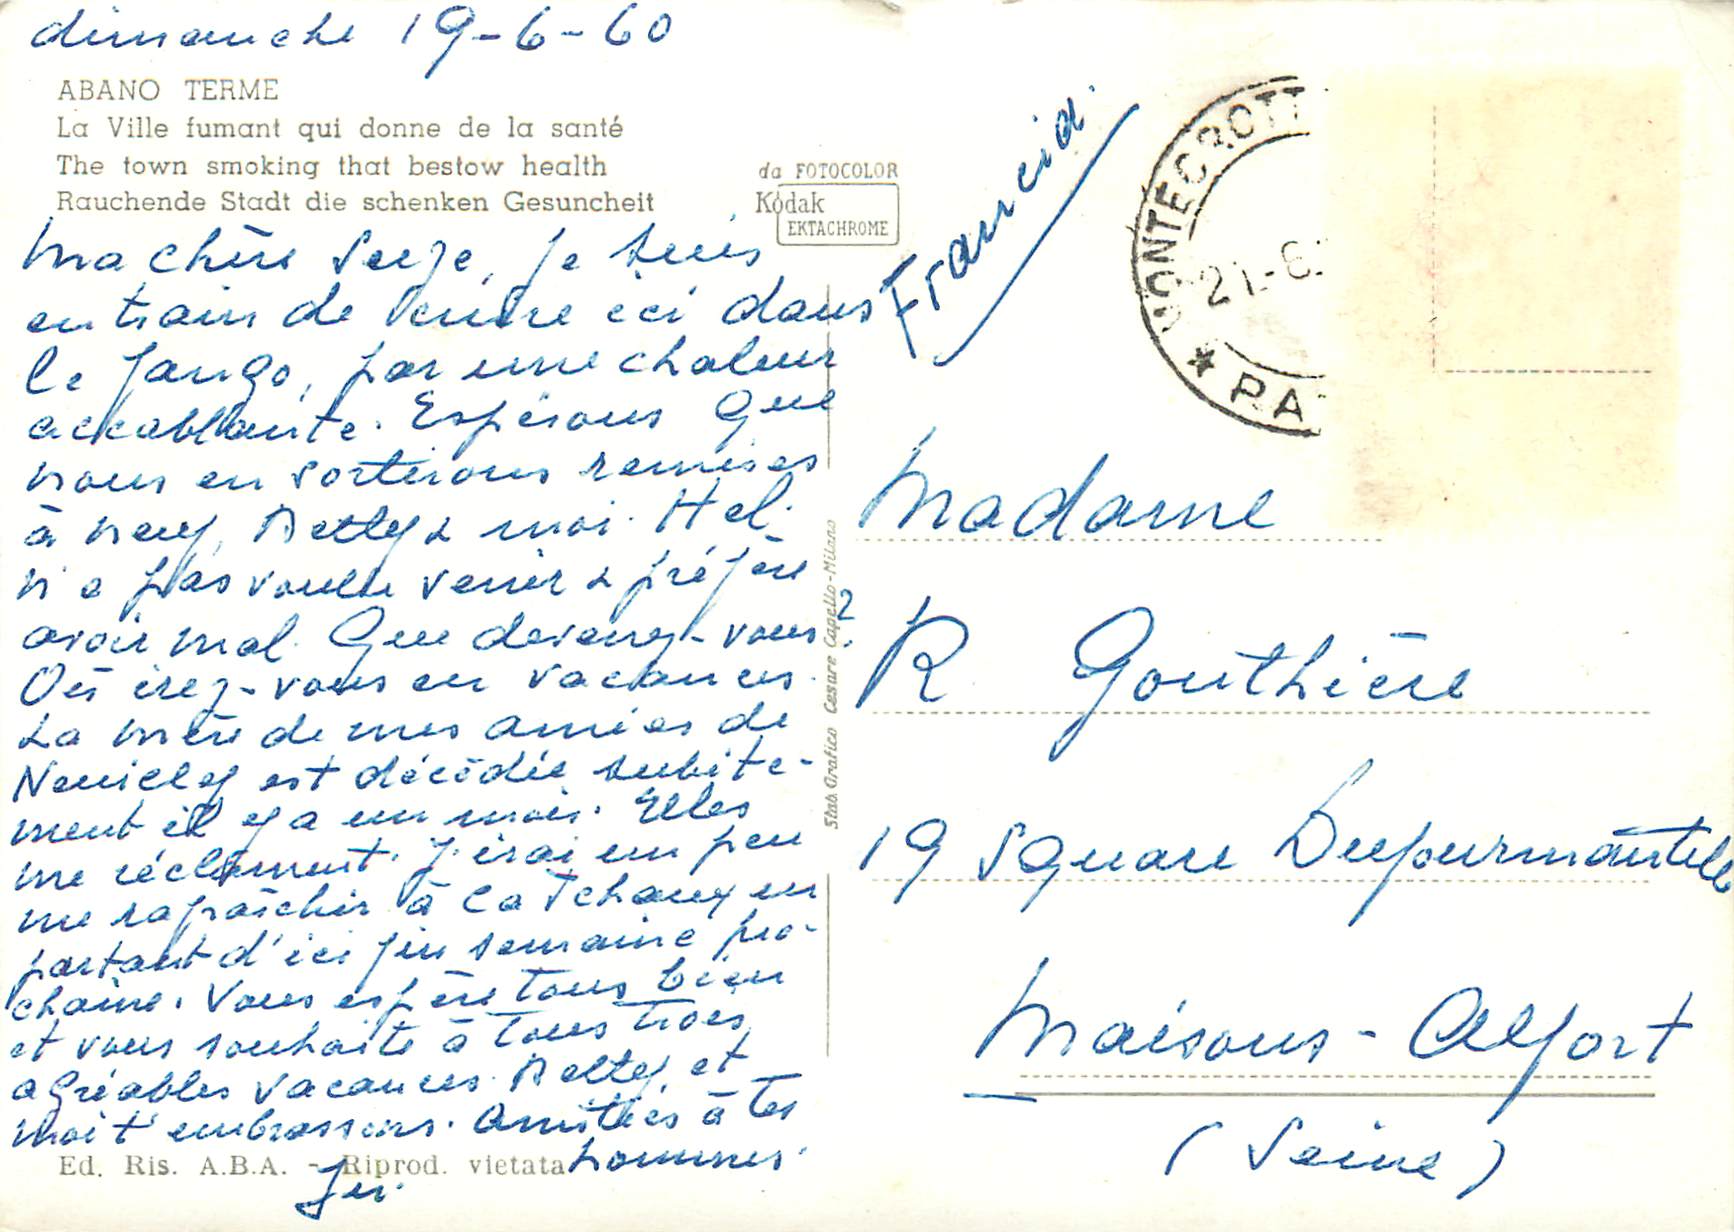 dimanche 19-6-60
ABANO TERME
La Ville fumant qui donne de la santé
The town smoking that bestow health
Rauchende Stadt die schenken Gesuncheit
da FOTOCOLOR
Kodak
EKTACHROME
Ma chère Serge, je suis
en train de cuire ici dans
le fango, par une chaleur
accablante. Espérons que
nous en sortirons remises
à neuf, Betty & moi. Hel.
n'a pas voulu venir & préfère
avoir mal. Que devenez-vous?
Où irez-vous en vacances.
La mère de mes amies de
Neuilly est décédée subite-
ment il y a un mois. Elles
me réclament. J'irai un peu
me rafraîchir à La Tchaux en
partant d'ici fin semaine pro-
chaine. Vous espère tous bien
et vous souhaite à tous trois
agréables vacances. Betty et
moi t'embrassons. Amitiés à tes
hommes.
Ed. Ris. A.B.A. - Riprod. vietata
Stab. Grafico Cesare Capello-Milano
Francia.
MONTEGROTT
21.-6.
* PA
Madame
R Gouthière
19 Square Dufourmantelle
Maisons-Alfort
(Seine)